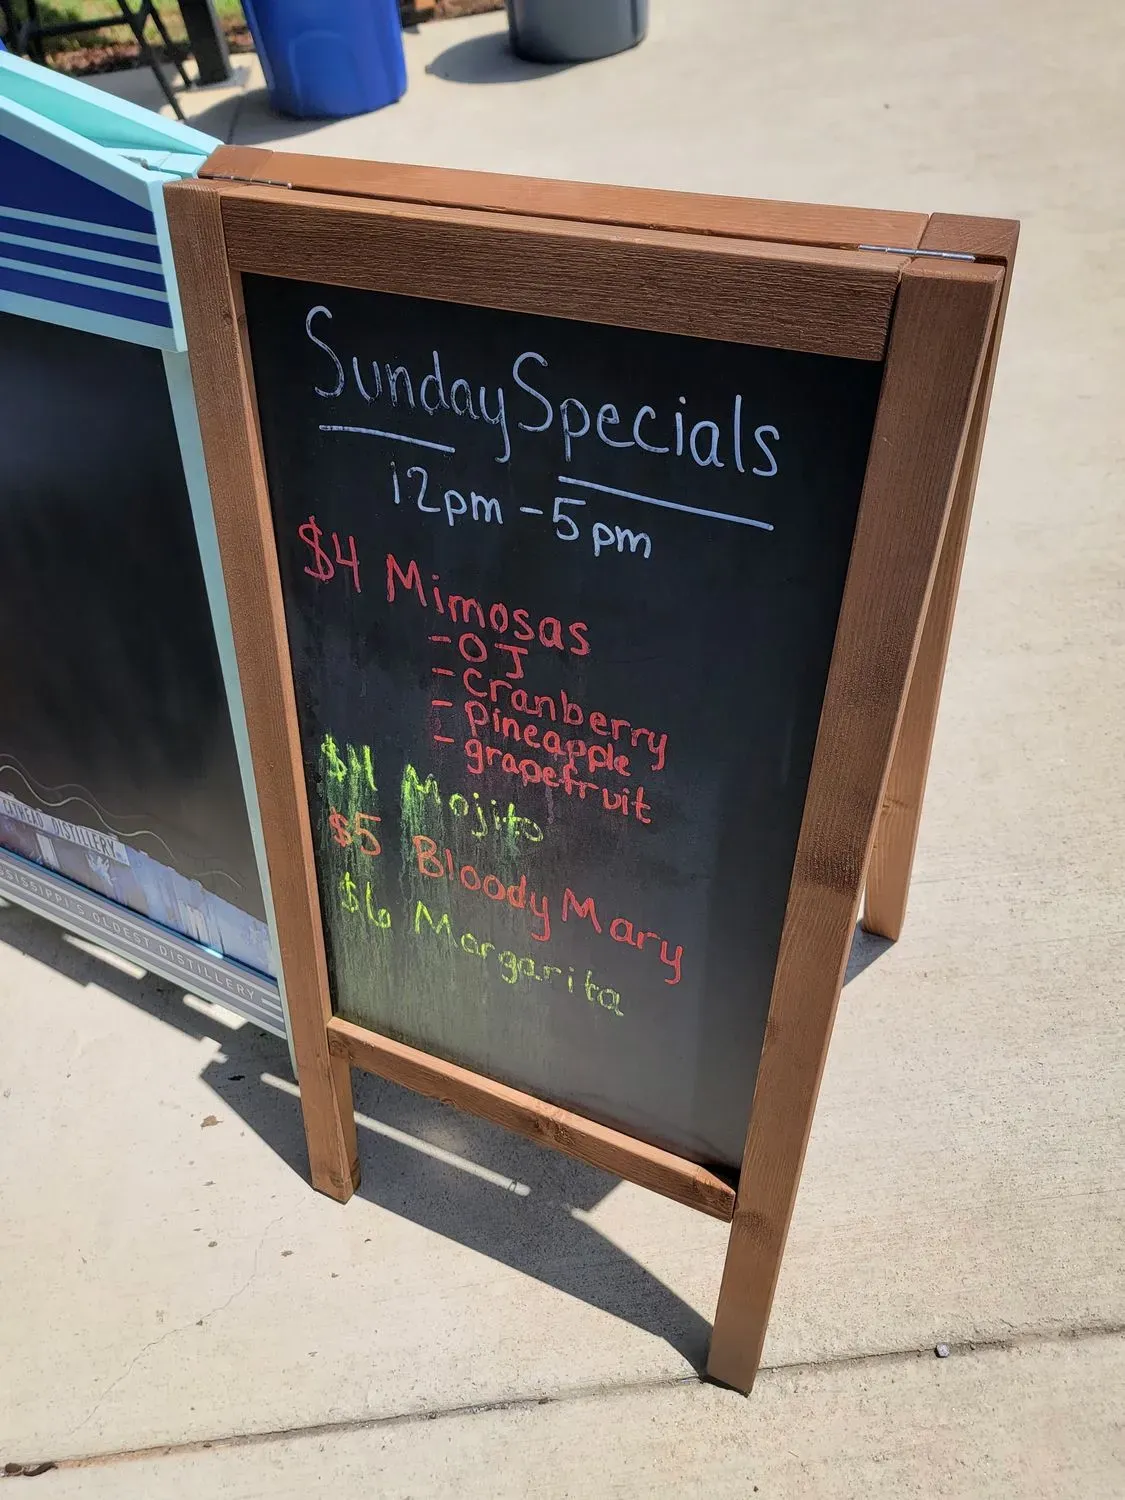 Sunday Specials
12pm - 5pm
$4 Mimosas
- OJ
- cranberry
- pineapple
- grapefruit
$4 Mojito
$5 Bloody Mary
$6 Margarita
CATHEAD DISTILLERY
SSISSIPPI'S OLDEST DISTILLERY